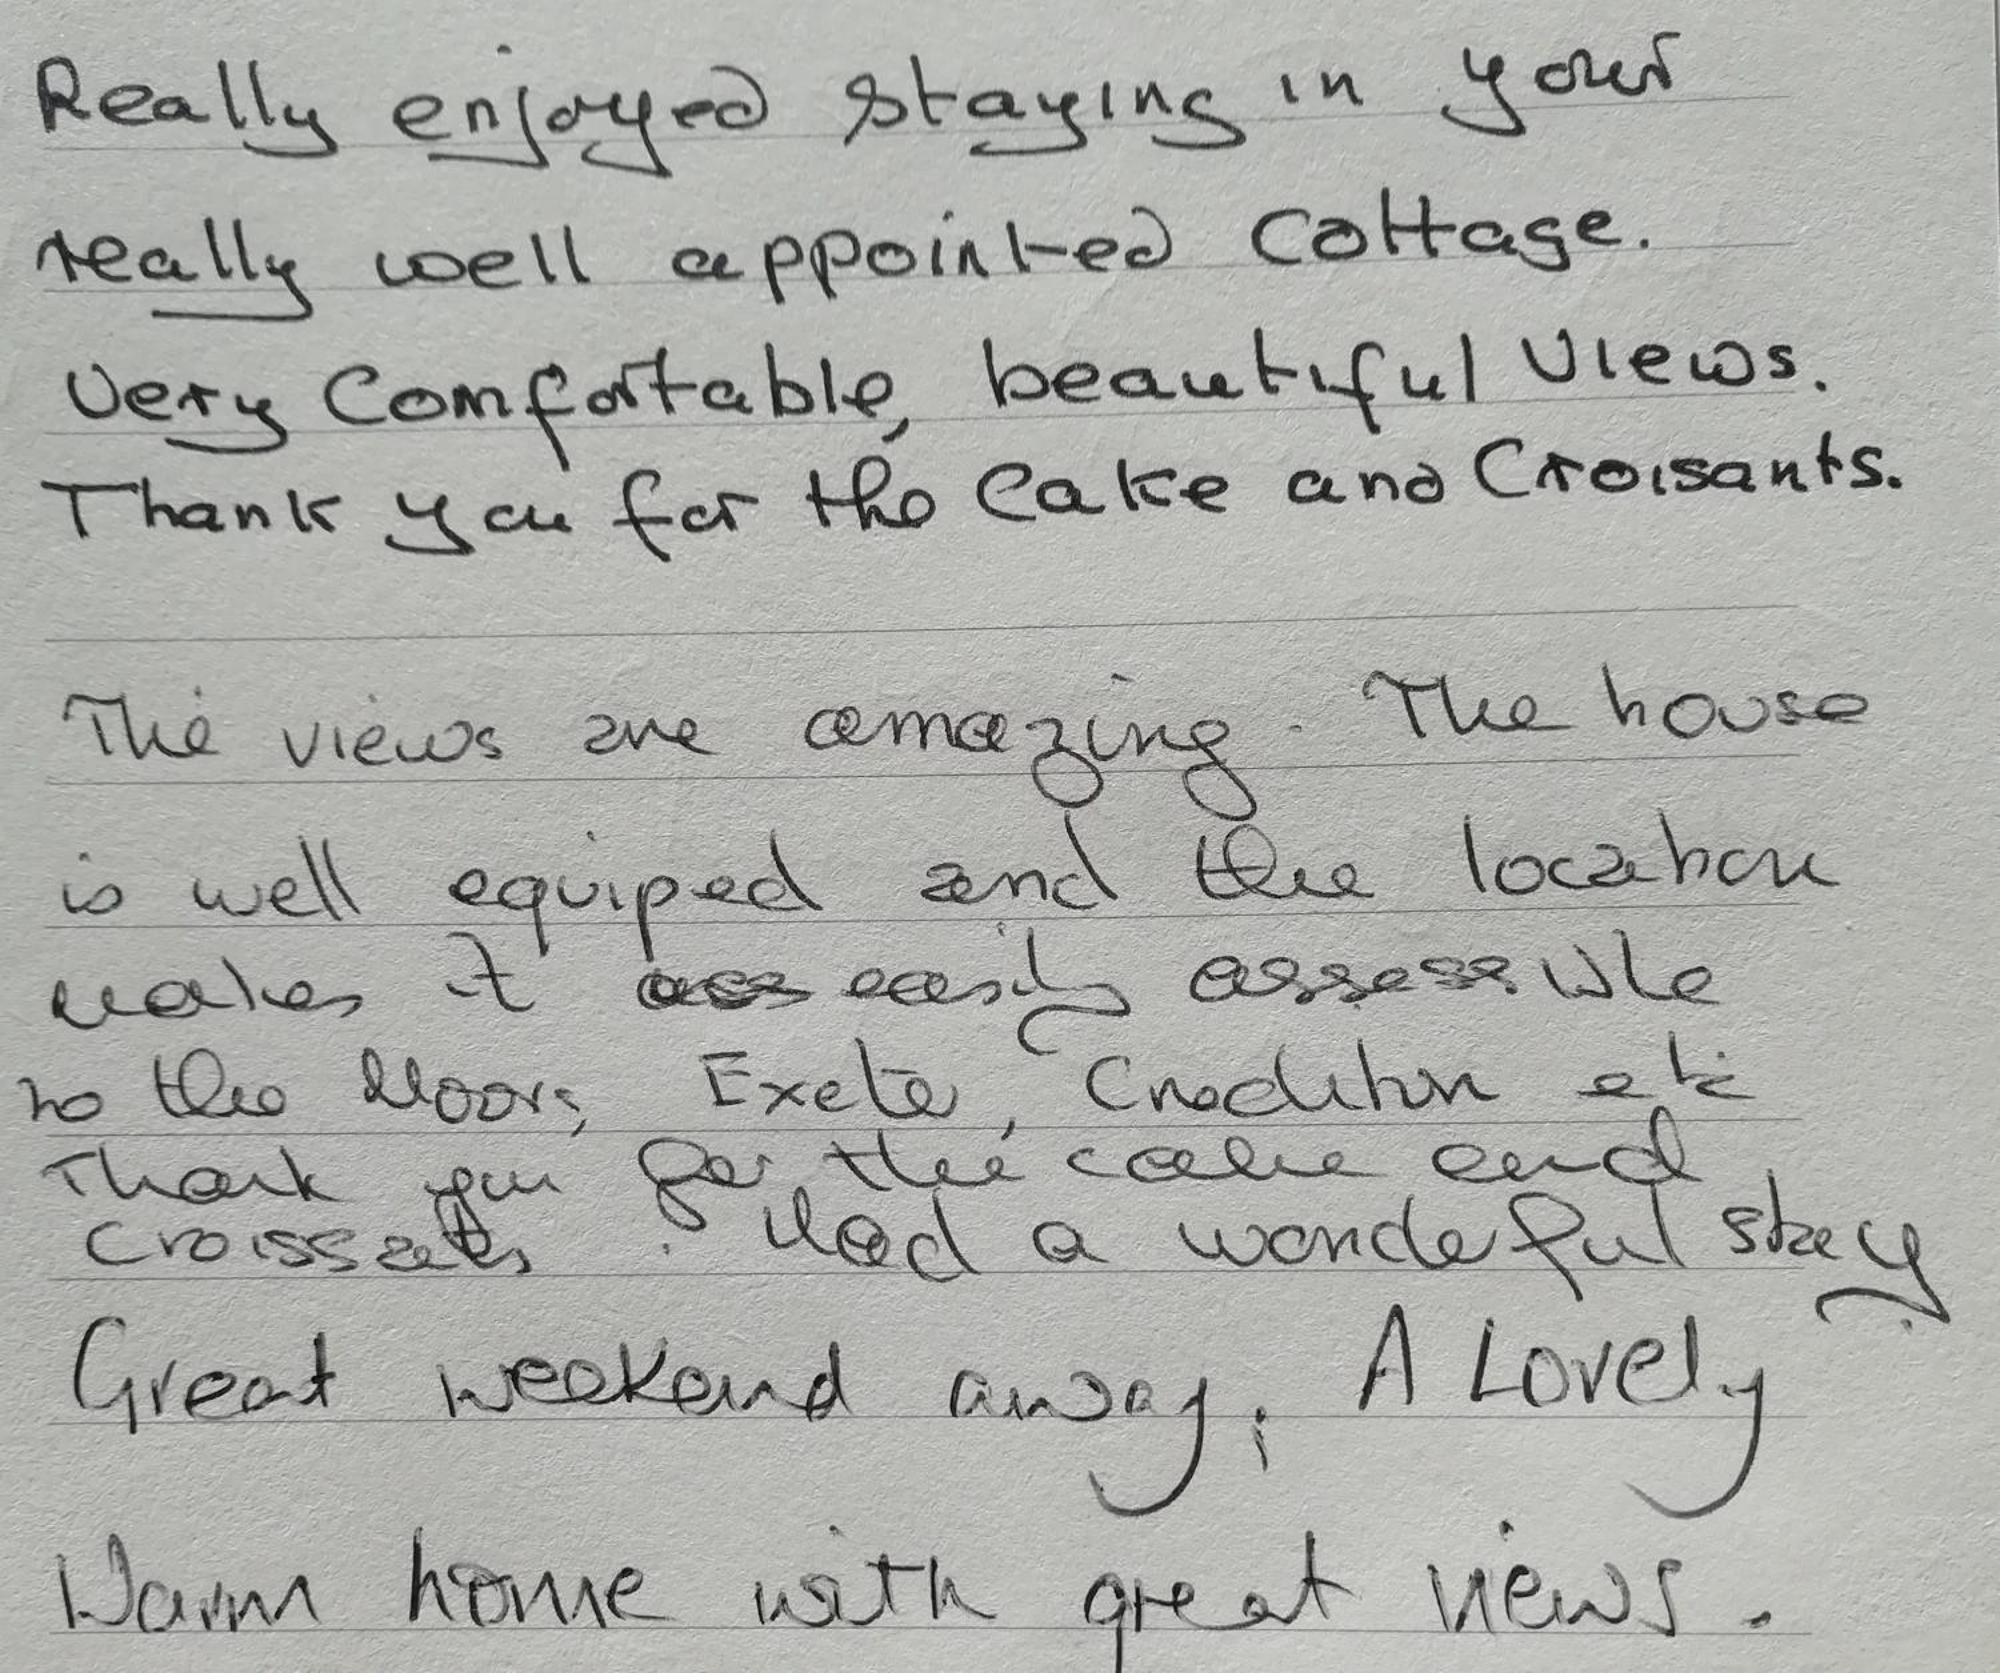 Really enjoyed staying in your
really well appointed Cottage.
Very Comfortable, beautiful Views.
Thank you for the Cake and Croisants.
The views are amazing. The house
is well equiped and the location
makes it easily assessible
to the Moors, Exeter, Crediton etc
Thank you for the cake and
croissants. Had a wonderful stay
Great weekend away, A Lovely
Warm home with great views.